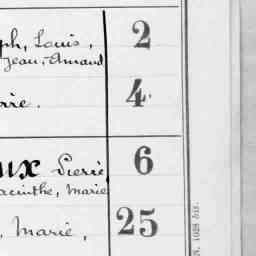 ph, Louis, 2
Jean, Amand
rie. 4
ux Pierre 6
acinthe, Marie
, Marie, 25
N. 1028 bis.